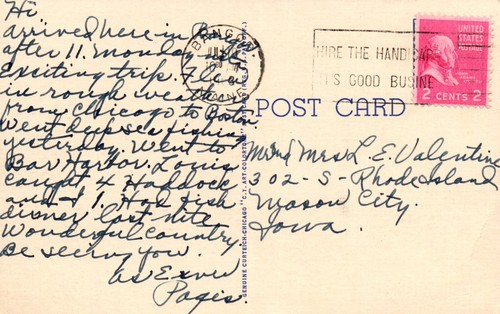 Hi
arrived here in Bangor
after 11. Monday nite
Exciting trip. Flew
in rough weather
from Chicago to Boston
Went deep sea fishing
yesterday. Went to
Bar Harbor. Louis
caught 4 Haddock
and I 1. Had fish
dinner last nite
Wonderful country.
Be seeing you.
as Ever
Pages.
BANGOR
MAINE
HIRE THE HANDICAP
IT'S GOOD BUSINE
UNITED STATES
POSTAGE
2 CENTS 2
POST CARD
Mr and Mrs L. E. Valentine
302-S-Rhode Island
Mason City.
Iowa.
GENUINE CURTEICH-CHICAGO "C.T. ART-COLORTONE" POST CARD